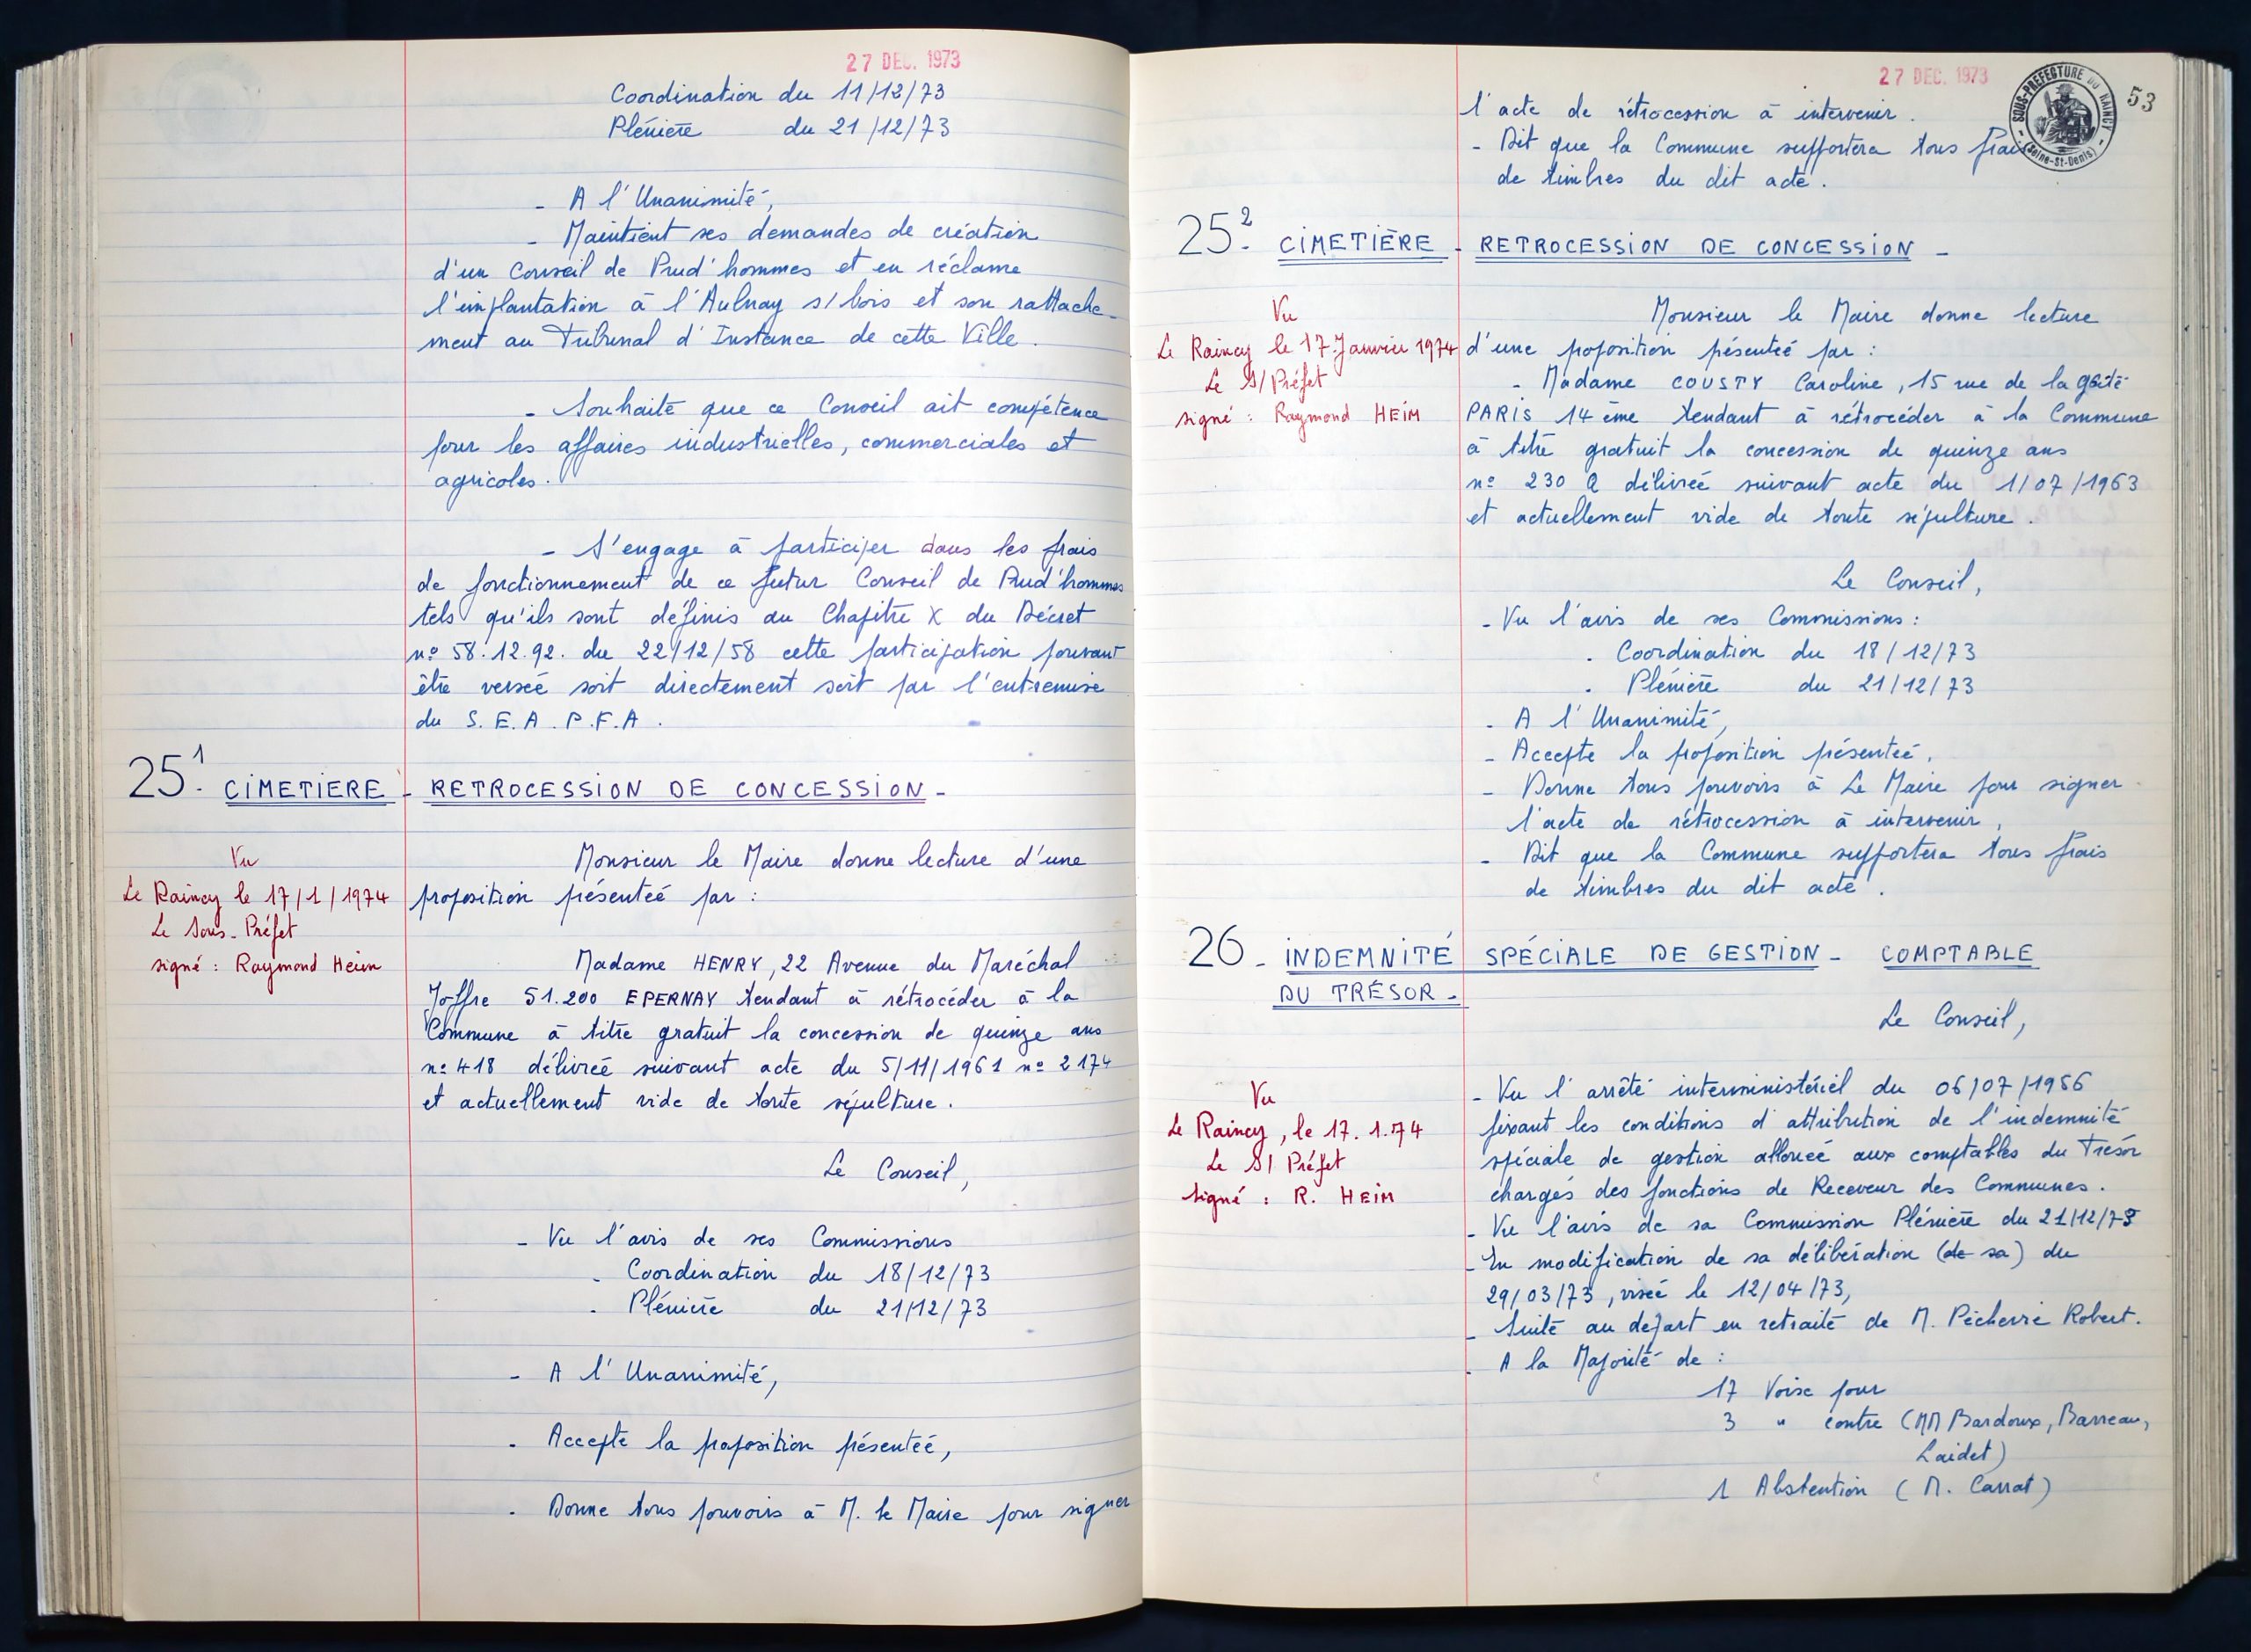 27 DEC. 1973
Coordination du 11/12/73
Plénière du 21/12/73
- A l'Unanimité,
- Maintient ses demandes de création
d'un Conseil de Prud'hommes et en réclame
l'implantation à l'Aulnay s/bois et son rattache-
ment au Tribunal d'Instance de cette Ville.
- Souhaite que ce Conseil ait compétence
pour les affaires industrielles, commerciales et
agricoles.
- S'engage à participer dans les frais
de fonctionnement de ce futur Conseil de Prud'hommes
tels qu'ils sont définis au Chapitre X du Décret
n° 58.12.92. du 22/12/58 cette participation pouvant
être versée soit directement soit par l'entremise
du S.E.A.P.F.A.
25.1 CIMETIERE - RETROCESSION DE CONCESSION -
Vu
Le Raincy le 17/1/1974
Le Sous-Préfet
signé : Raymond Heim
Monsieur le Maire donne lecture d'une
proposition présentée par :
Madame HENRY, 22 Avenue du Maréchal
Joffre 51.200 EPERNAY tendant à rétrocéder à la
Commune à titre gratuit la concession de quinze ans
n° 418 délivrée suivant acte du 5/11/1961 n° 2174
et actuellement vide de toute sépulture.
Le Conseil,
- Vu l'avis de ses Commissions
. Coordination du 18/12/73
. Plénière du 21/12/73
- A l'Unanimité,
. Accepte la proposition présentée,
. Donne tous pouvoirs à M. le Maire pour signer
27 DEC. 1973
SOUS-PRÉFECTURE DU RAINCY
(Seine-St-Denis)
53
l'acte de rétrocession à intervenir.
- Dit que la Commune supportera tous frais
de timbres du dit acte.
25.2 CIMETIÈRE - RETROCESSION DE CONCESSION -
Vu
Le Raincy le 17 Janvier 1974
Le S/Préfet
signé : Raymond HEIM
Monsieur le Maire donne lecture
d'une proposition présentée par :
- Madame COUSTY Caroline, 15 rue de la gaité
PARIS 14 ème tendant à rétrocéder à la Commune
à titre gratuit la concession de quinze ans
n° 230 Q délivrée suivant acte du 1/07/1963
et actuellement vide de toute sépulture.
Le Conseil,
- Vu l'avis de ses Commissions :
. Coordination du 18/12/73
. Plénière du 21/12/73
- A l'Unanimité,
- Accepte la proposition présentée,
- Donne tous pouvoirs à Le Maire pour signer
l'acte de rétrocession à intervenir,
- Dit que la Commune supportera tous frais
de timbres du dit acte.
26 - INDEMNITÉ SPÉCIALE DE GESTION - COMPTABLE
DU TRÉSOR -
Le Conseil,
Vu
Le Raincy, le 17.1.74
Le S/Préfet
signé : R. HEIM
- Vu l'arrêté interministériel du 06/07/1956
fixant les conditions d'attribution de l'indemnité
spéciale de gestion allouée aux comptables du Trésor
chargés des fonctions de Receveur des Communes.
- Vu l'avis de sa Commission Plénière du 21/12/73
- En modification de sa délibération (de sa) du
29/03/73, visée le 12/04/73,
- Suite au départ en retraite de M. Pécherie Robert.
. A la Majorité de :
17 Voix pour
3 " contre (MM Bardoux, Barreau,
Laidet)
1 Abstention (M. Carrat)